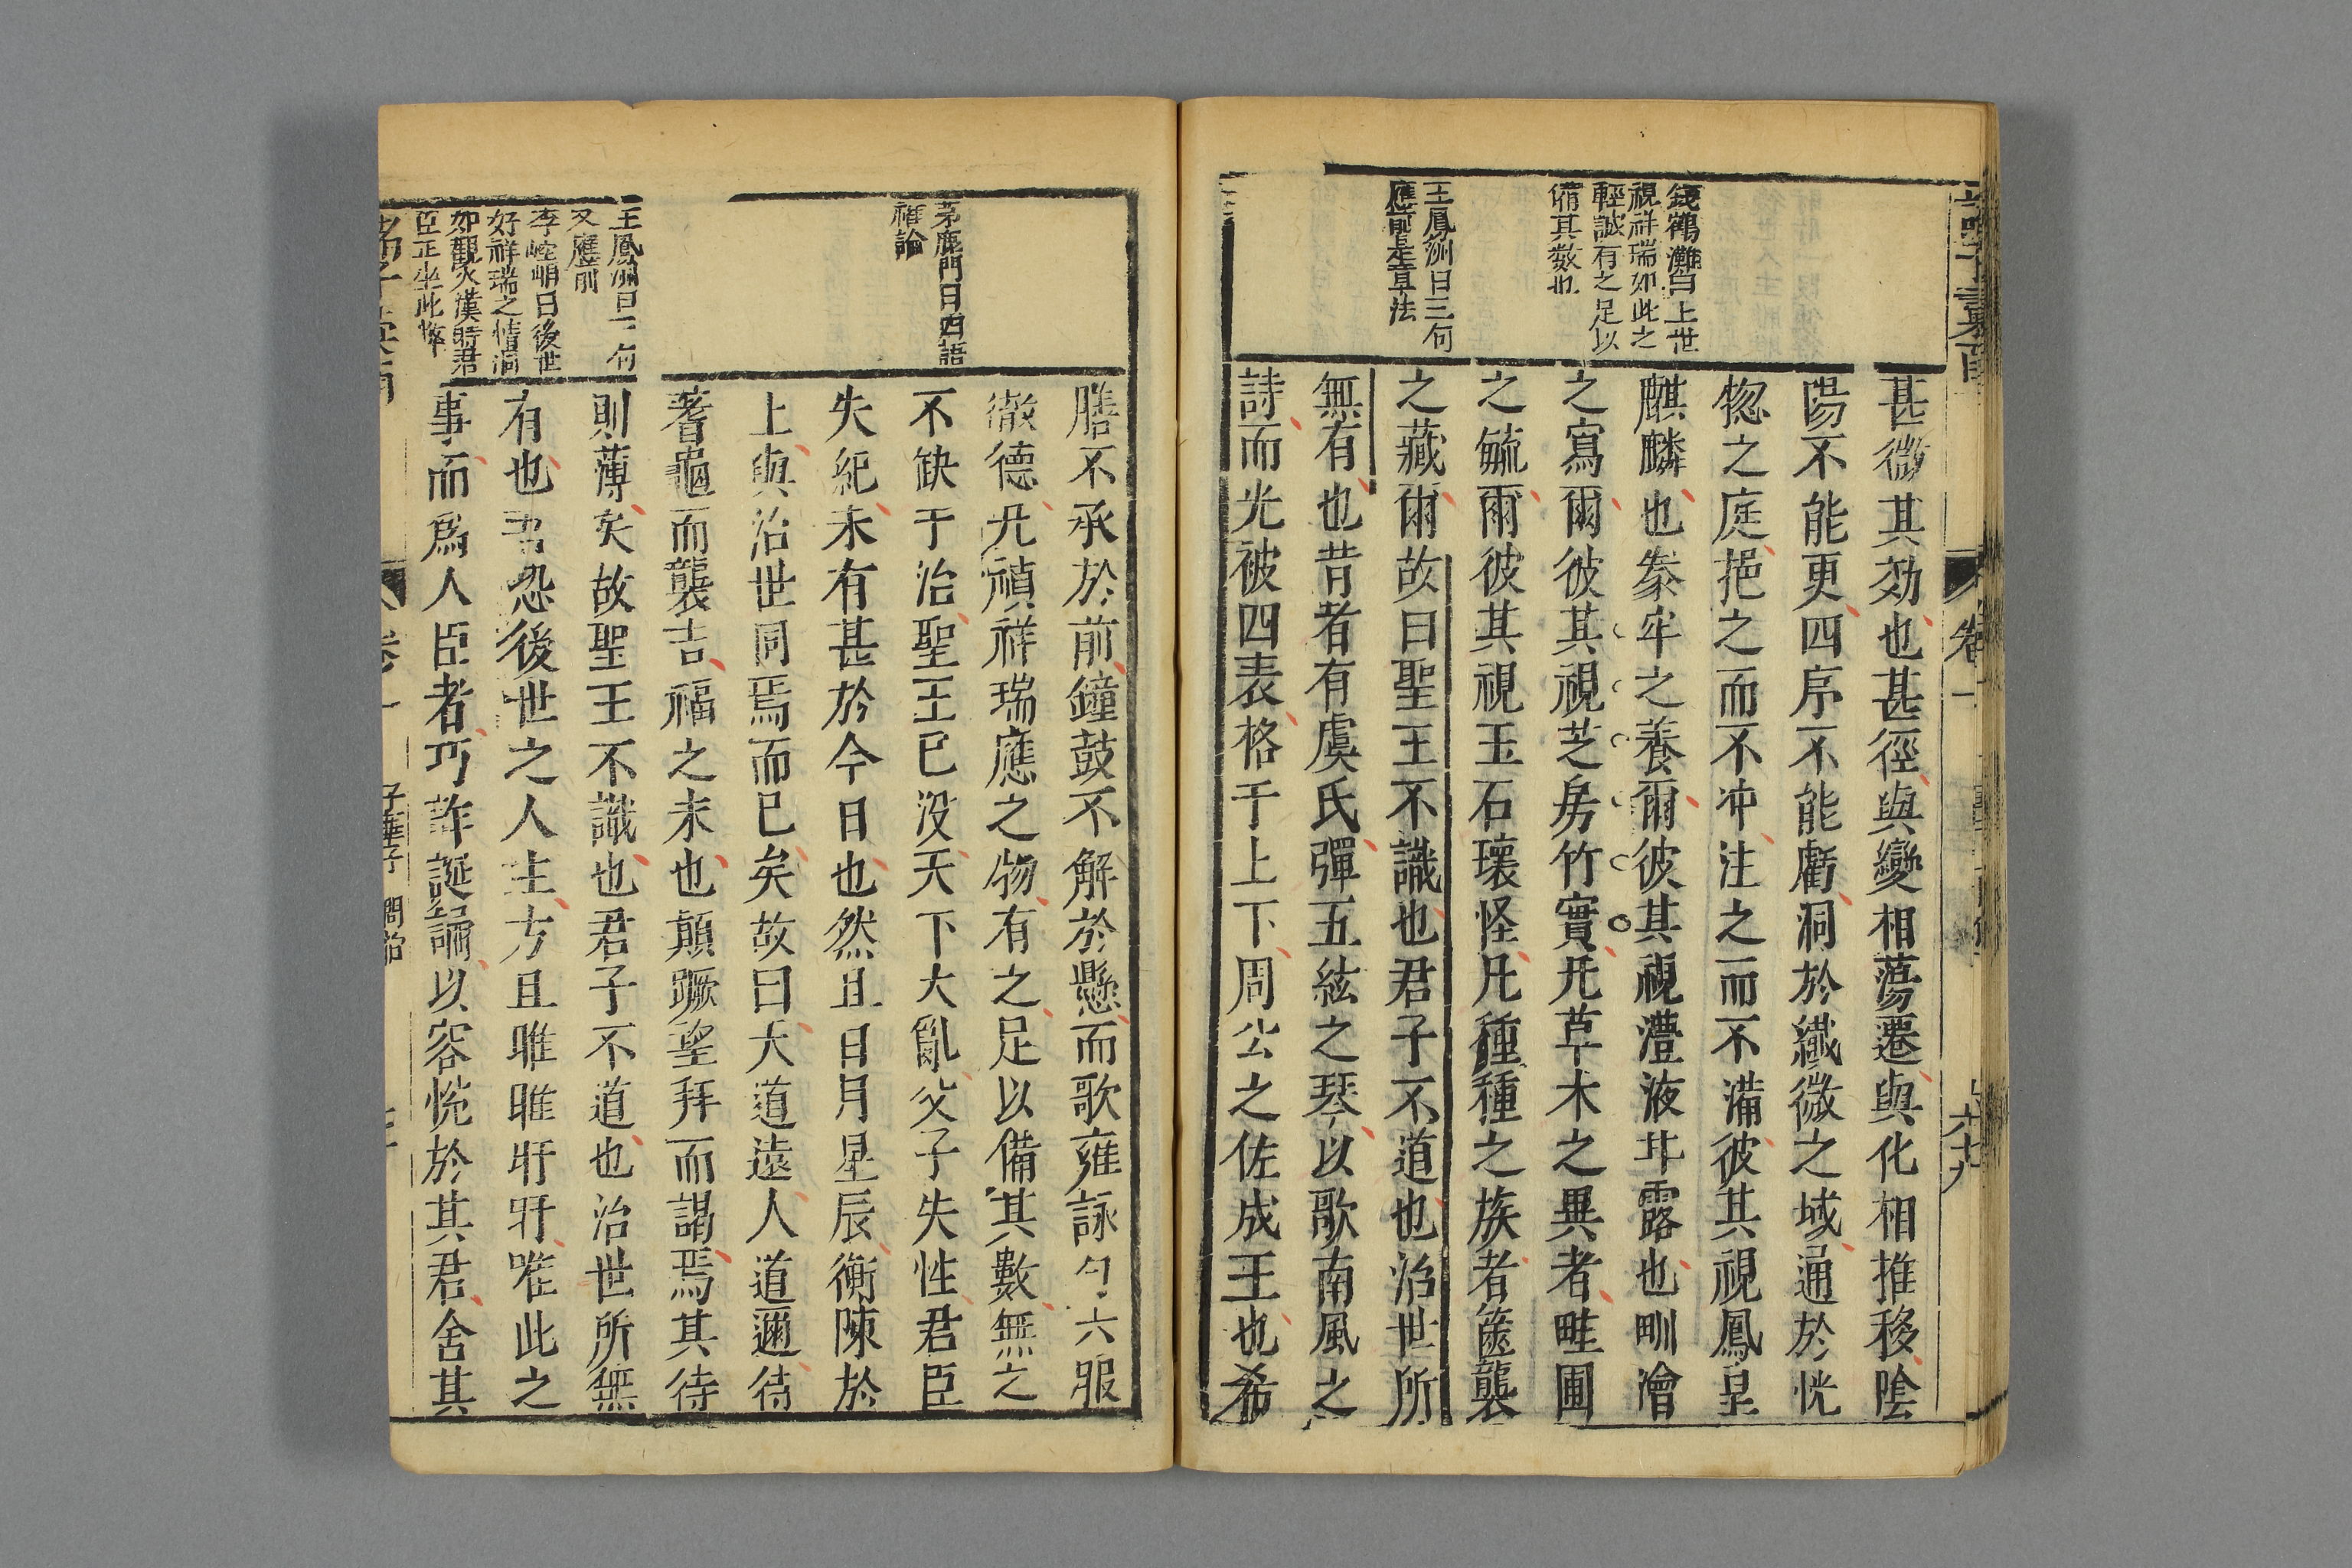 錢鶴灘曰上世
視祥瑞如此之
輕誠有之足以
備其数也
王鳳洲曰三句
應前是章法
甚微其効也甚徑與變相蕩遷與化相推移陰
陽不能更四序不能虧洞於纖微之域通於恍
惚之庭挹之而不冲注之而不滿彼其視鳳皇
麒麟也豢牢之養爾彼其視澧液甘露也甽澮
之寫爾彼其視芝房竹實凡草木之異者畦圃
之毓爾彼其視玉石瓌怪凡種種之族者篋襲
之藏爾故曰聖王不識也君子不道也治世所
無有也昔者有虞氏彈五絃之琴以歌南風之
詩而光被四表格于上下周公之佐成王也希
卷一
茅鹿門曰四語
確論
王鳳洲曰一句
又應前
李崆峒曰後世
好祥瑞之情洞
如觀火漢時君
臣正坐此弊
膳不承於前鐘鼓不解於懸而歌雍詠勺六服
徹德凡禎祥瑞應之物有之足以備其數無之
不缺于治聖王已没天下大亂父子失性君臣
失紀未有甚於今日也然且日月星辰衡陳於
上與治世同焉而已矣故曰大道遠人道邇待
蓍龜而襲吉福之末也顛蹶望拜而謁焉其待
則薄矣故聖王不識也君子不道也治世所無
有也吾恐後世之人主方且睢睢盱盱唯此之
事而爲人臣者巧詐誕謾以容恱於其君舍其
卷一
子華子